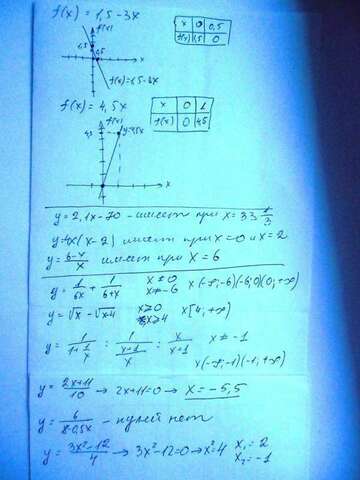 f(x) = 1,5 - 3x
x 0 0,5
f(x) 1,5 0
f(x)
0,5
x
f(x)=1,5-3x
f(x) = 4,5x
x 0 1
f(x) 0 4,5
f(x)
4,5
y=4,5x
x
y = 2,1x - 70 - имеет при x = 33 1/3
y=4x(x-2) имеет при x = 0 и x = 2
y = 6-x/x имеет при x = 6
y = 1/6x + 1/6+x x ≠ 0 x ≠ -6 x(-∞;-6)(-6;0)(0;+∞)
y = √x - √x-4 x ≥ 0 x ≥ 4 x[4;+∞)
y = 1/1+1/x = 1/x+1/x = x/x+1 x ≠ -1
x(-∞;-1)(-1;+∞)
y = 2x+11/10 → 2x+11=0 → x = -5,5
y = 6/8-0,5x - нулей нет
y = 3x²-12/4 → 3x²-12=0 → x²=4 x₁ = 2 x₂ = -1